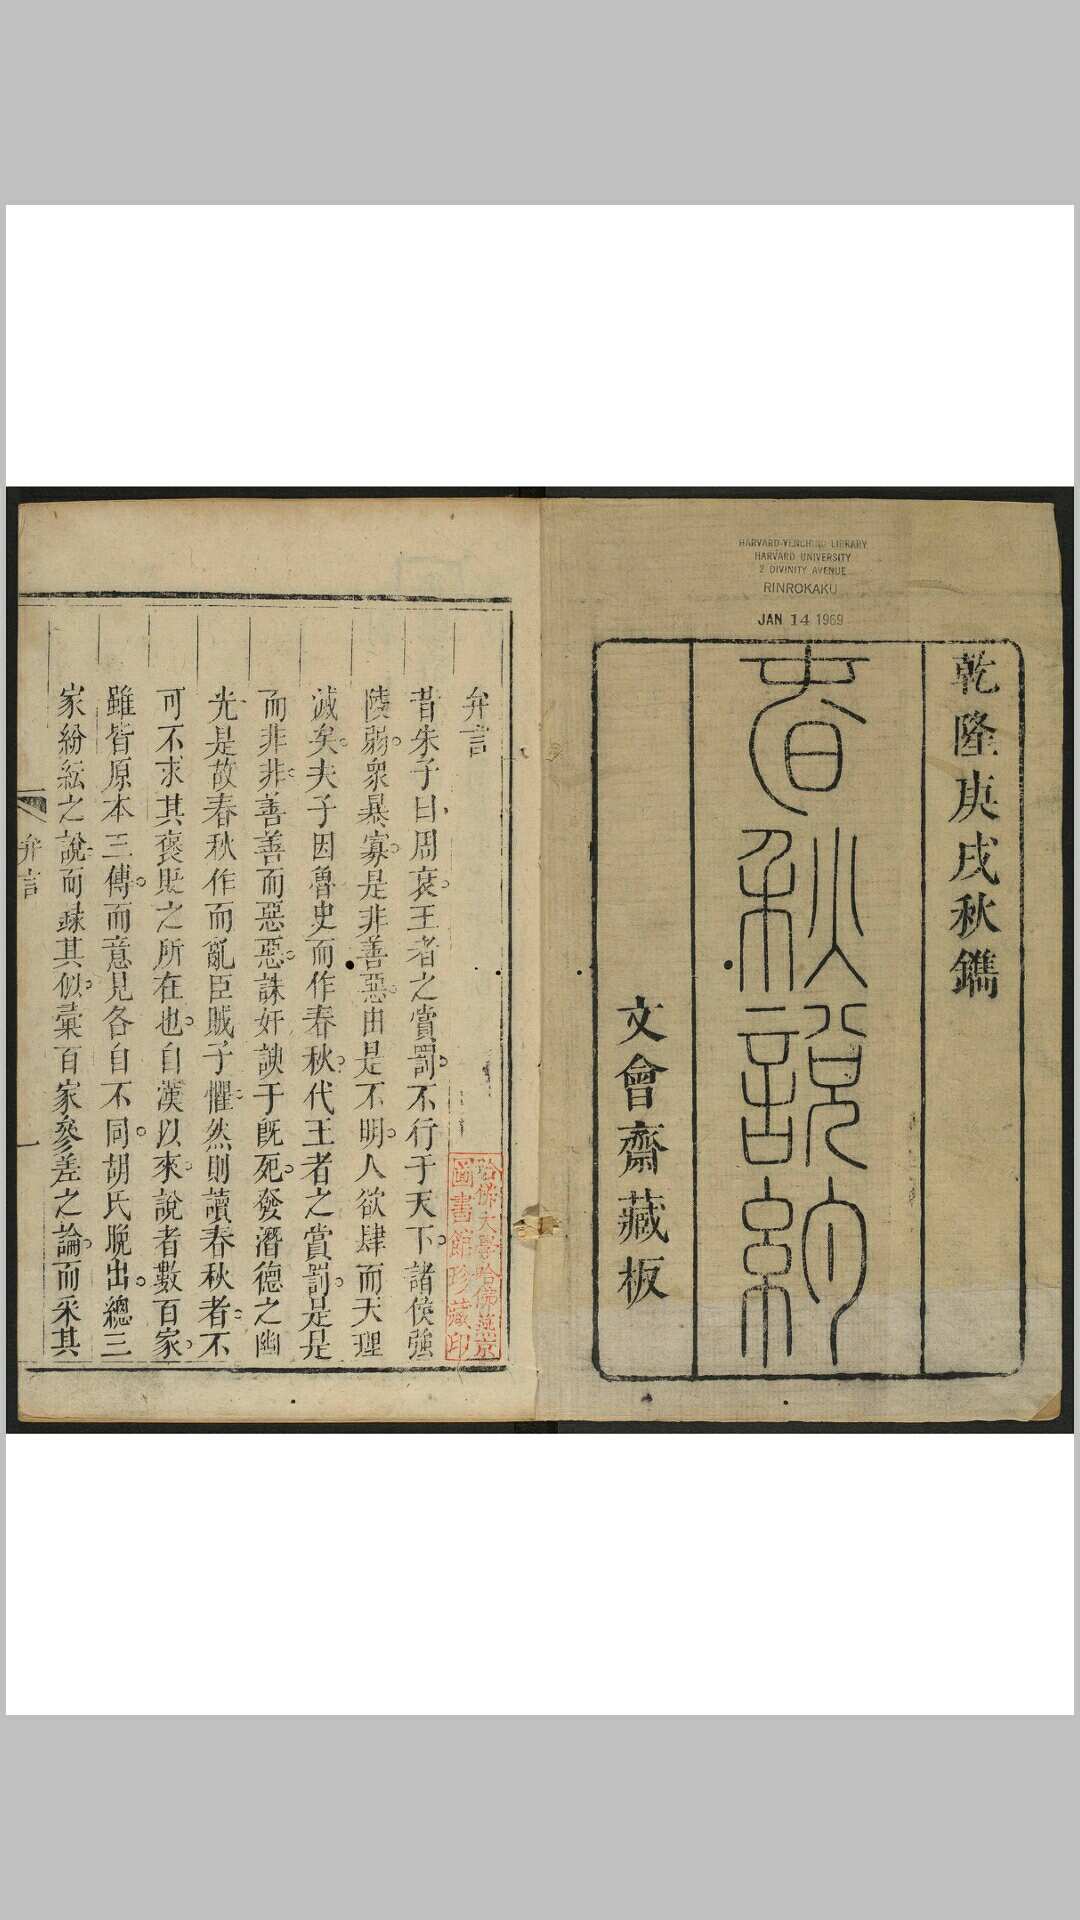 HARVARD-YENCHING LIBRARY
HARVARD UNIVERSITY
2 DIVINITY AVENUE
RINROKAKU
JAN 14 1969
乾隆庚戌秋鐫
春秋說約
文會齋藏板
弁言
昔朱子曰周衰王者之賞罰不行于天下諸侯強
陵弱衆暴寡是非善惡由是不明人欲肆而天理
滅矣夫子因魯史而作春秋代王者之賞罰是是
而非非善善而惡惡誅奸諛于既死發潛德之幽
光是故春秋作而亂臣賊子懼然則讀春秋者不
可不求其褒貶之所在也自漢以來說者數百家
雖皆原本三傳而意見各自不同胡氏晚出總三
家紛紜之說而録其似彙百家參差之論而采其
弁言
一
哈佛大學哈佛燕京
圖書館珍藏印